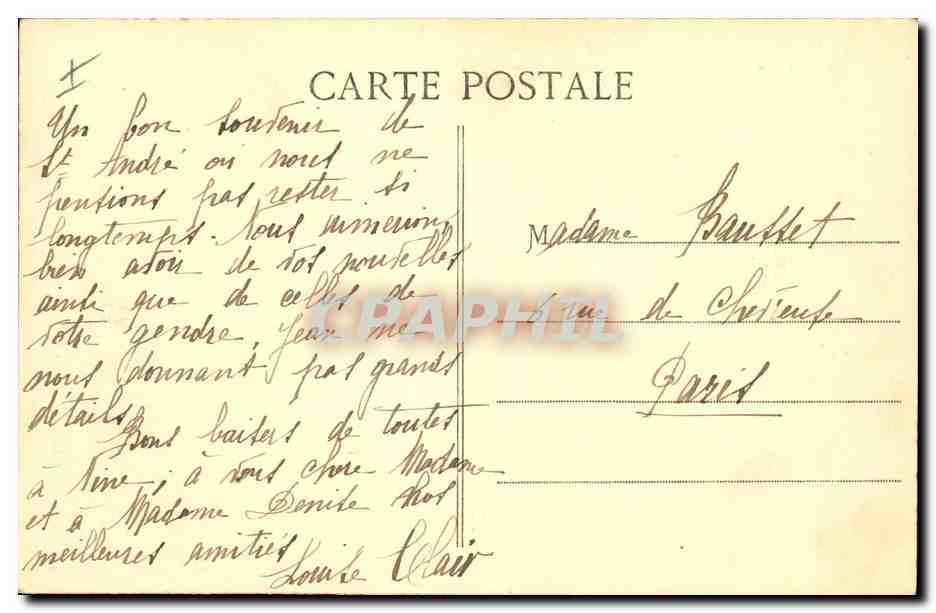 CARTE POSTALE
Un bon souvenir de
St André où nous ne
pensions pas rester si
longtemps. Nous aimerions
bien avoir de vos nouvelles
ainsi que de celles de
votre gendre, Jean ne
nous donnant pas grands
détails.
Bons baisers de toutes
à Nine, à vous chère Madame
et à Madame Denise nos
meilleures amitiés
Louise Clair
Madame Bausset
6 rue de Chevreuse
Paris
CPAPHIL